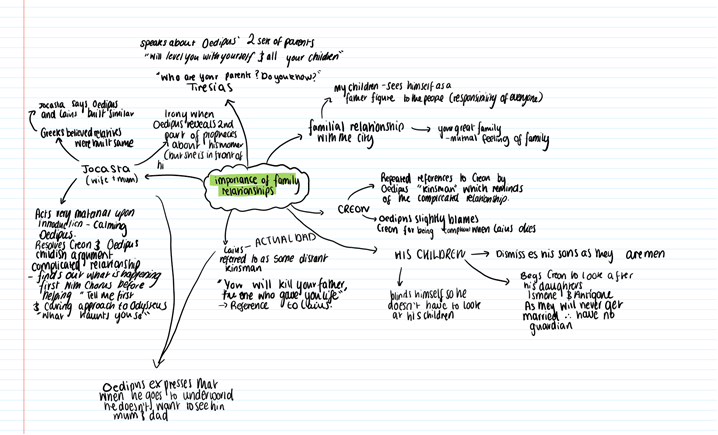 speaks about Oedipus' 2 sets of parents
"Will level you with yourself & all your children"
"Who are your parents? Do you know?"
Tiresias
my children - sees himself as a
father figure to the people (responsibility of everyone)
familial relationship
with the city
your great family
- mutual feeling of family
Jocasta says Oedipus
and Laius built similar
Greeks believed relatives
were built same
Irony when
Oedipus reveals 2nd
part of prophecies
about his mother
(but she is in front of
hi
Jocasta
(wife + mum)
importance of family
relationships
CREON
Repeated references to Creon by
Oedipus "kinsman" which reminds
of the complicated relationship.
Oedipus slightly blames
Creon for being when Laius dies
Acts very maternal upon
introduction - calming
Oedipus.
Resolves Creon & Oedipus
childish argument
complicated relationship
finds out what is happening
first from Chorus before
helping "Tell me first
& caring approach to Odysseus
"What haunts you so"
Laius - ACTUAL DAD
referred to as some distant
kinsman
"You will kill your father,
the one who gave you life"
→ Reference to Laius
HIS CHILDREN
Dismisses his sons as they are men
blinds himself so he
doesn't have to look
at his children
Begs Creon to look after
his daughters
Ismene & Antigone
As they will never get
married ∴ have no
guardian
Oedipus expresses that
when he goes to underworld
he doesn't want to see his
mum & dad